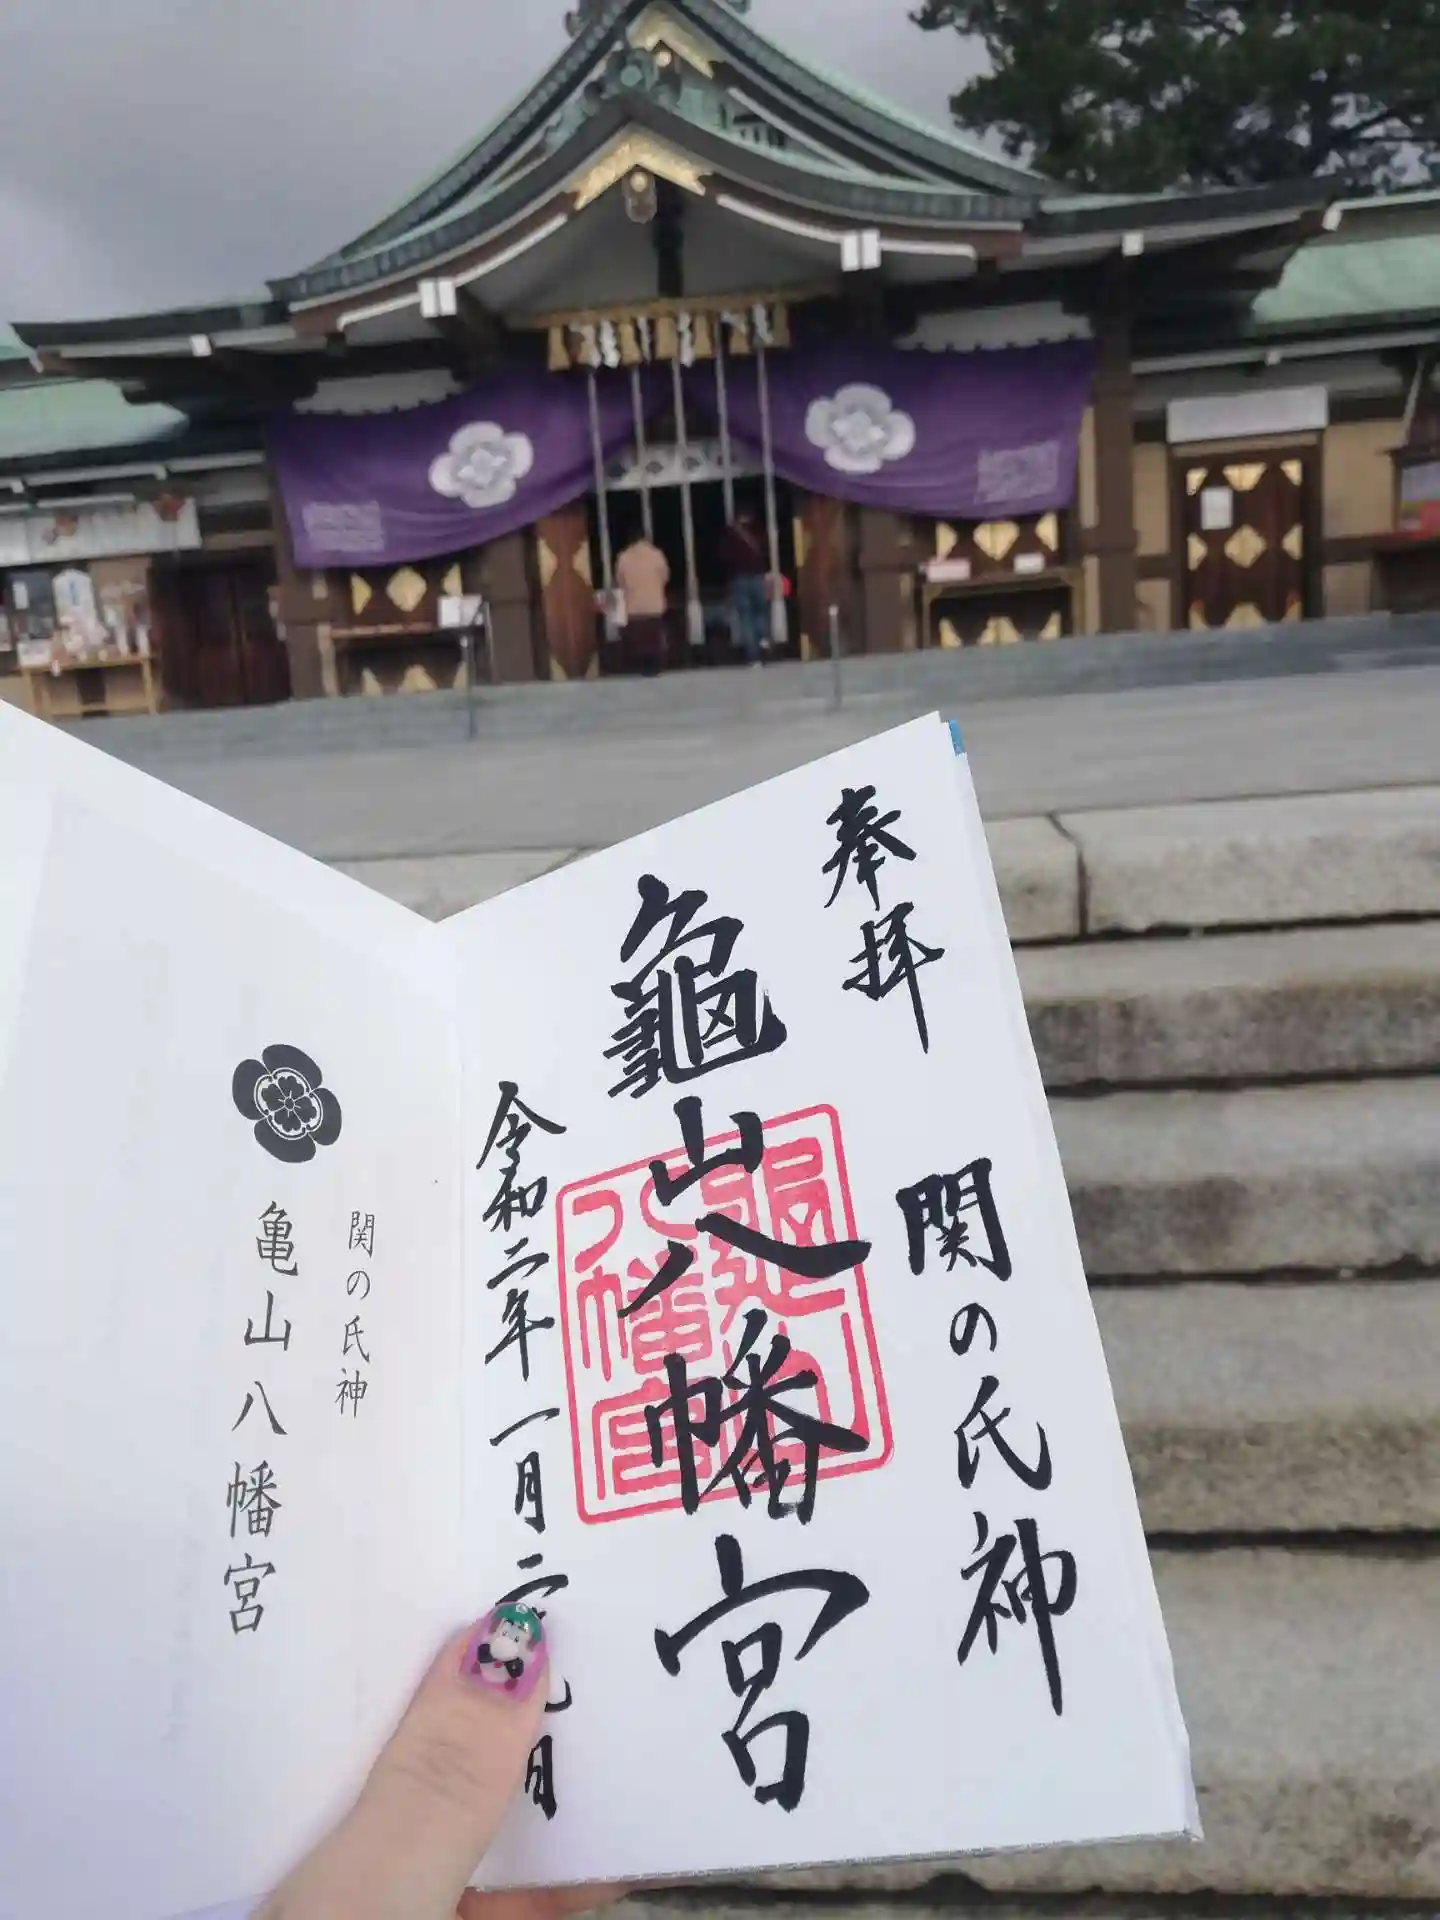 奉拝
関の氏神
龜山八幡宮
令和二年一月二
関の氏神
亀山八幡宮